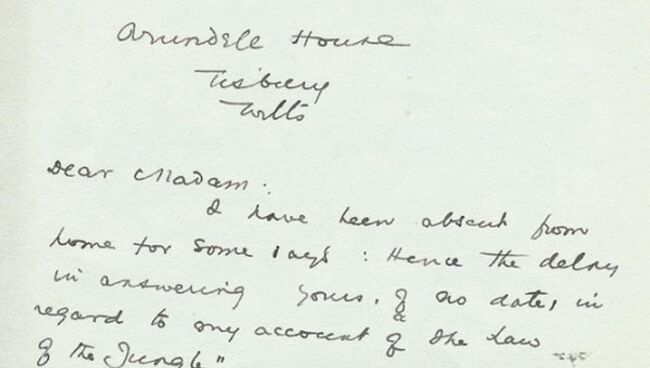 Arundell House
Tisbury
Wilts
Dear Madam:
I have been absent from
home for some days : Hence the delay
in answering yours, of no date, in
regard to my account of the Law
of the Jungle"